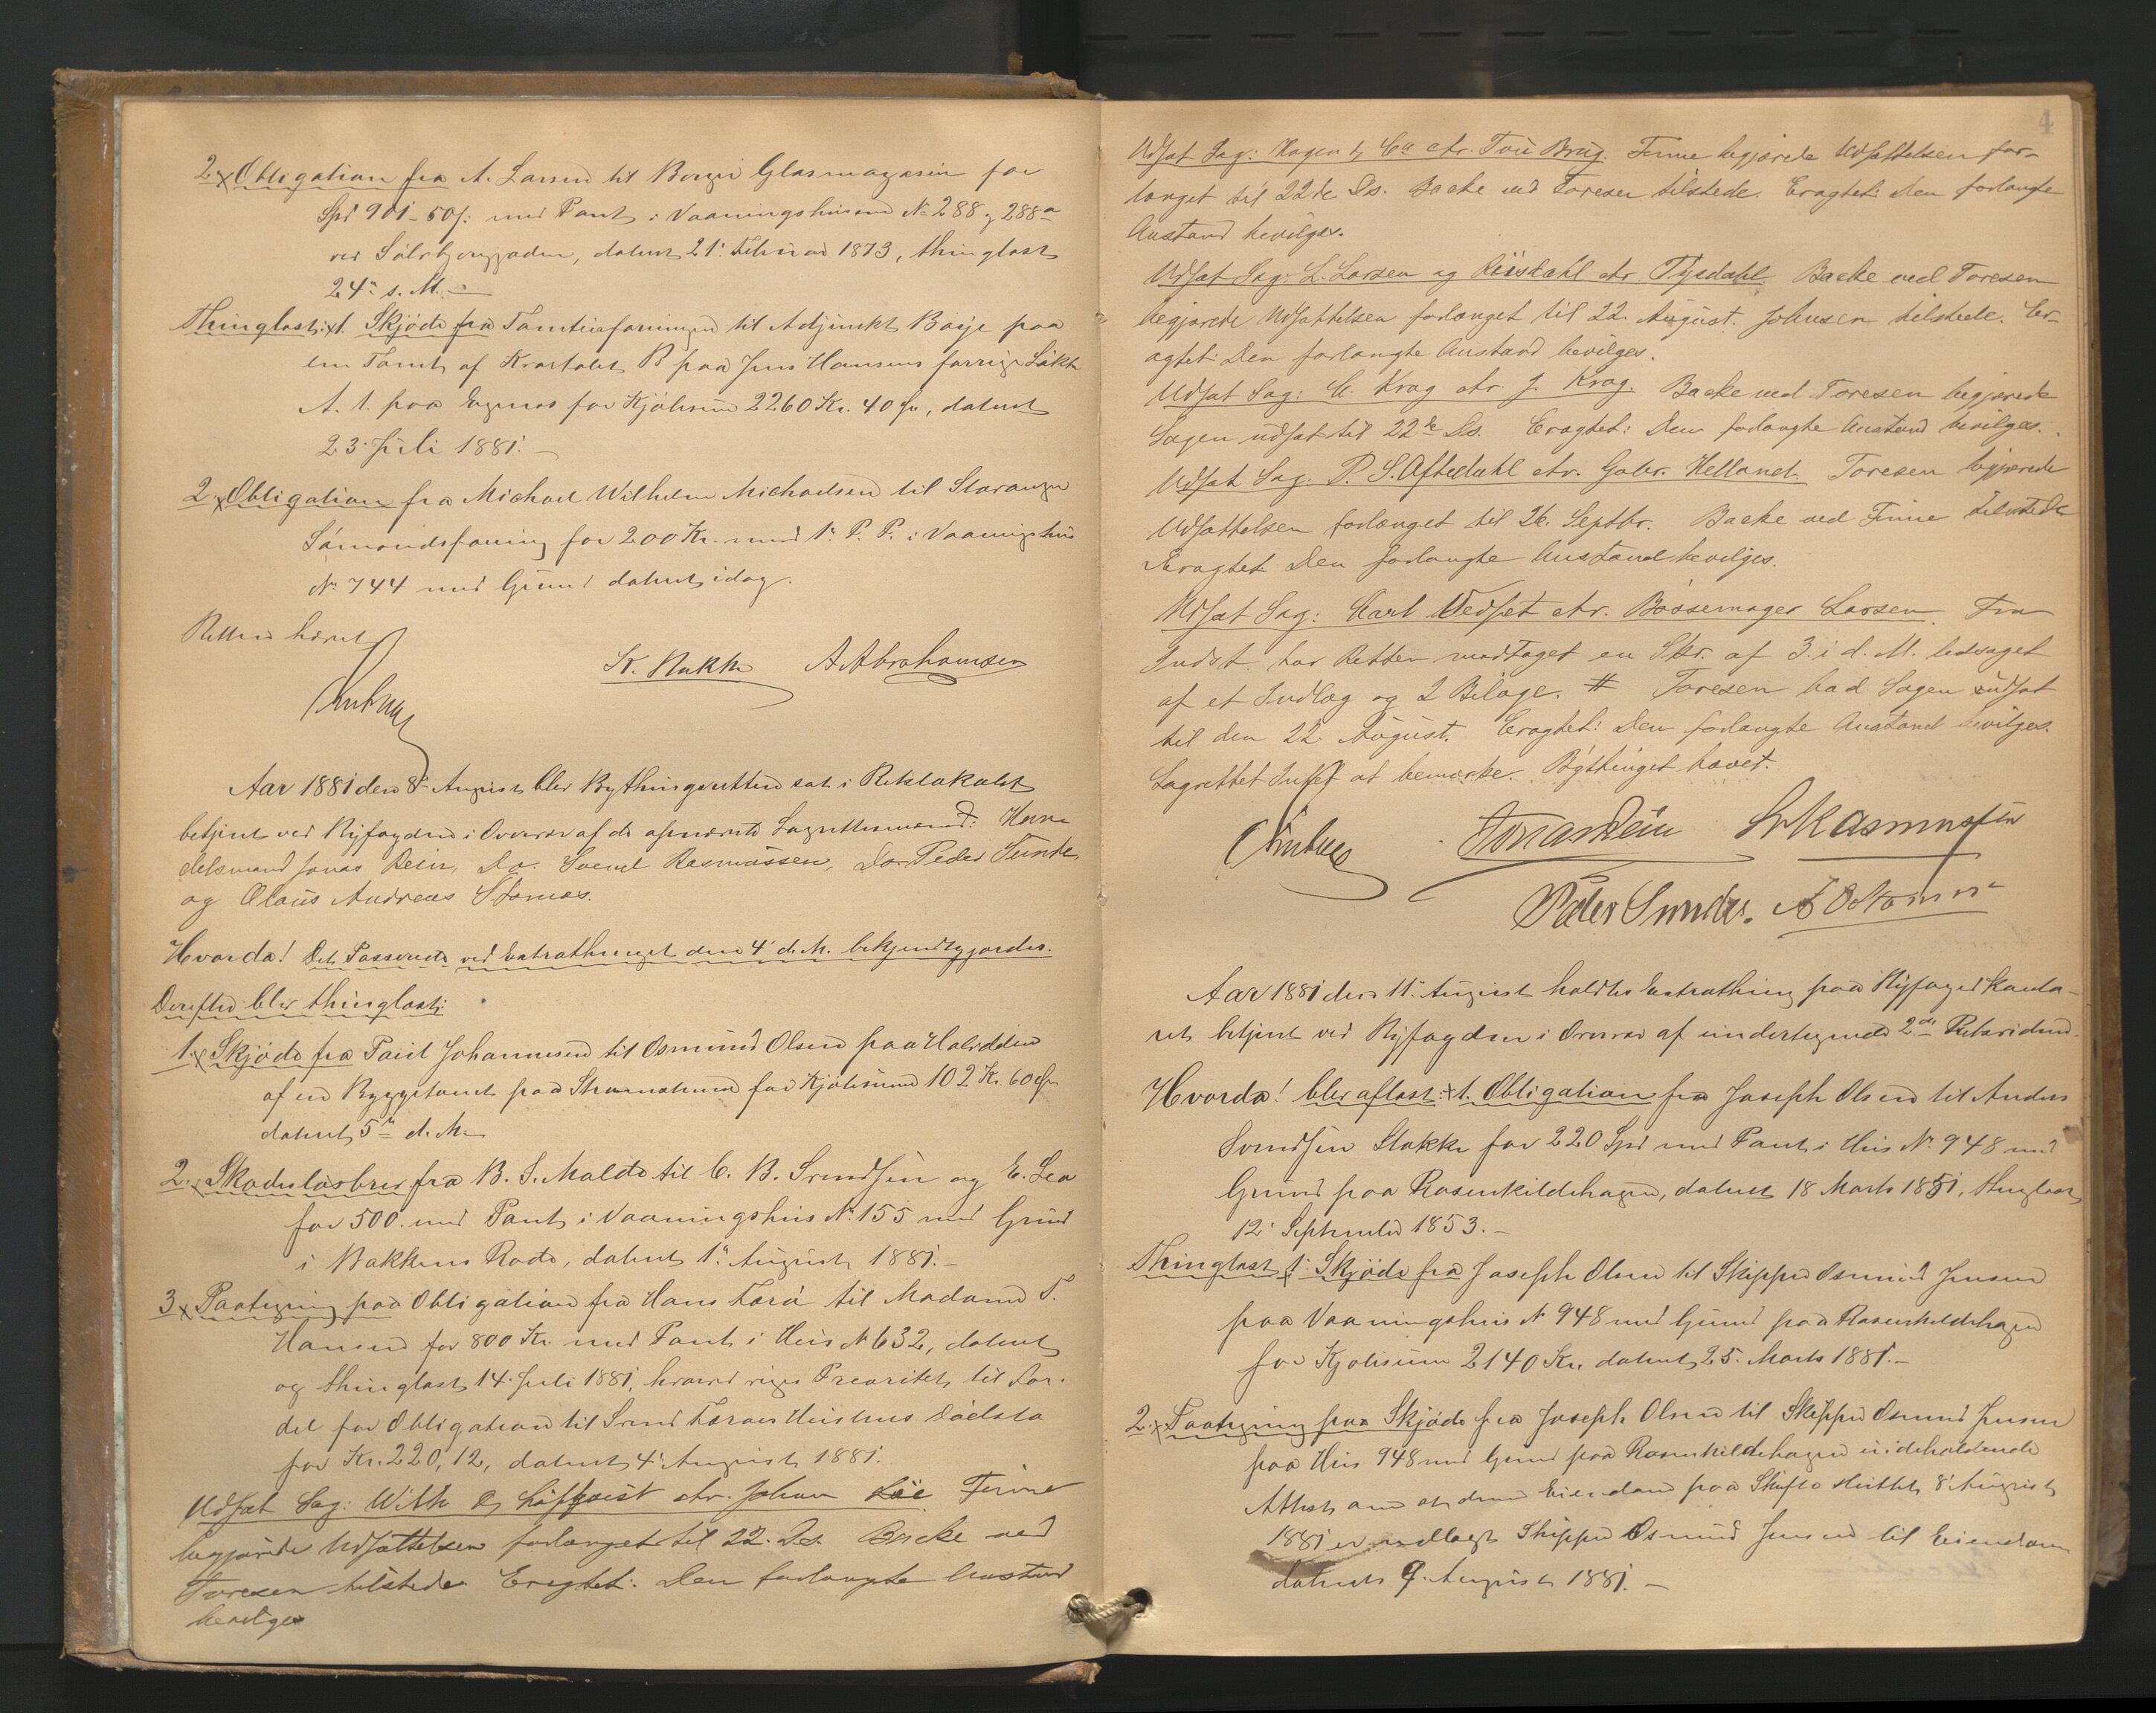 2. Obligation fra A. Larsen til Borger Glasmagasin for
Spd 901-50 med Pant i Vaaningshusene No 288 og 288a
ved Sølvbjerggaden, datert 21 Februar 1873, thinglæst
24de s. M.
Thinglæst: 1. Skjøde fra Tomteforeningen til Adjunkt Boye paa
en Tomt af Kvartalet B paa Jens Hansens forrige Løkke
A. 1. paa Egenes for Kjøbesum 2260 Kr. 40 Øre, datert
23 Juli 1881.
2. Obligation fra Michael Wilhelm Michaelsen til Stavanger
Sømandsforening for 200 Kr. med 1. P. P. i Vaaningshus
No 744 med Grund datert idag.
Retten hævet
K. Bakke A Abrahamsen
Aar 1881 den 8de August blev Bythingsretten sat i Retslokalet
betjent ved Byfogden i Overvær af de opnævnte Lagrettesmænd: Han-
delsmand Jonas Rein, Do. Svend Rasmussen, Do. Peder Sunde
og Olaus Andreas Stornes.
Hvorda! Det Passerede ved Extrathinget den 4 d. M. bekjendtgjordes.
Derefter blev thinglæst:
1. Skjøde fra Paul Johannesen til Osmund Olsen paa Halvdelen
af en Byggetomt paa for Kjøbesum 102 Kr. 60 Øre
datert 5te d. M.
2. Skadesløsbrev fra B. S. Malde til C. B. Svendsen og E. Lea
for 500 med Pant i Vaaningshus No 155 med Grund
i Bakkens Rode, datert 1 August 1881.
3. Paategning paa Obligation fra Hans til Madame T.
Hansen for 800 Kr. med Pant i Hus No 632, datert
og thinglæst 14 Juli 1881, hvorved viges Prioritet til For-
del for Obligation til Svend
for Kr. 220,12, datert 4 August 1881.
Udsat Sag: With & Løfquist ctr. Johan Finne
begjærede Udsættelsen forlænget til 22. Ds. Backe ved
Toresen tilstede. Eragtet: Den forlangte Anstand
bevilges
4
Udsat Sag: Hagen & Co ctr. Tou Brug. Finne begjærede Udsættelsen for-
længet til 22de Ds. Backe ved Toresen tilstede. Eragtet: Den forlangte
Anstand bevilges.
Udsat Sag: L. Larsen og Riisdahl ctr. Tysdahl. Backe ved Toresen
begjærede Udsættelsen forlænget til 22. August. Johnsen tilstede. Er-
agtet: Den forlangte Anstand bevilges.
Udsat Sag: C. Krag ctr. J. Krag. Backe ved Toresen begjærede
Sagen udsat til 22de Ds. Eragtet: Den forlangte Anstand bevilges.
Udsat Sag: P. S. Aftedahl ctr. Gabr. Helland. Toresen begjærede
Udsættelsen forlænget til 26. Septbr. Backe ved Finne tilstede
Eragtet Den forlangte Anstand bevilges.
Udsat Sag: Carl Vedset ctr. Bøssemager Larsen. Fra
Indst. har Retten modtaget en Skr. af 3. i d. M. ledsaget
af et Indlæg og 2 Bilage. # Toresen bad Sagen udsat
til den 22 August. Eragtet: Den forlangte Anstand bevilges.
Lagrettet Intet at bemærke. Bythinget hævet.
Jonas Rein S. Rasmussen
Peder Sunde. O A Stornes
Aar 1881 den 11te August holdtes Extrathing paa Byfogedkonto-
ret betjent ved Byfogden i Overvær af undertegnede 2de Retsvidner.
Hvorda! blev aflæst: 1. Obligation fra Joseph Olsen til Anders
Svendsen Stokke for 220 Spd med Pant i Hus No 948 med
Grund paa Rosenkildehagen, datert 18 Marts 1851, thinglæst
12 September 1853.
Thinglæst 1. Skjøde fra Joseph Olsen til Skipper Osmund Jensen
paa Vaaningshus No 948 med Grund paa Rosenkildehagen
for Kjøbesum 2140 Kr. datert 25. Marts 1881.
2. Paategning paa Skjøde fra Joseph Olsen til Skipper Osmund Jensen
paa Hus 948 med Grund paa Rosenkildehagen indeholdende
Attest om at denne Eiendom paa Skifte sluttet 8 August
1881 er udlagt Skipper Osmund Jensen til Eiendom
datert 9. August 1881.